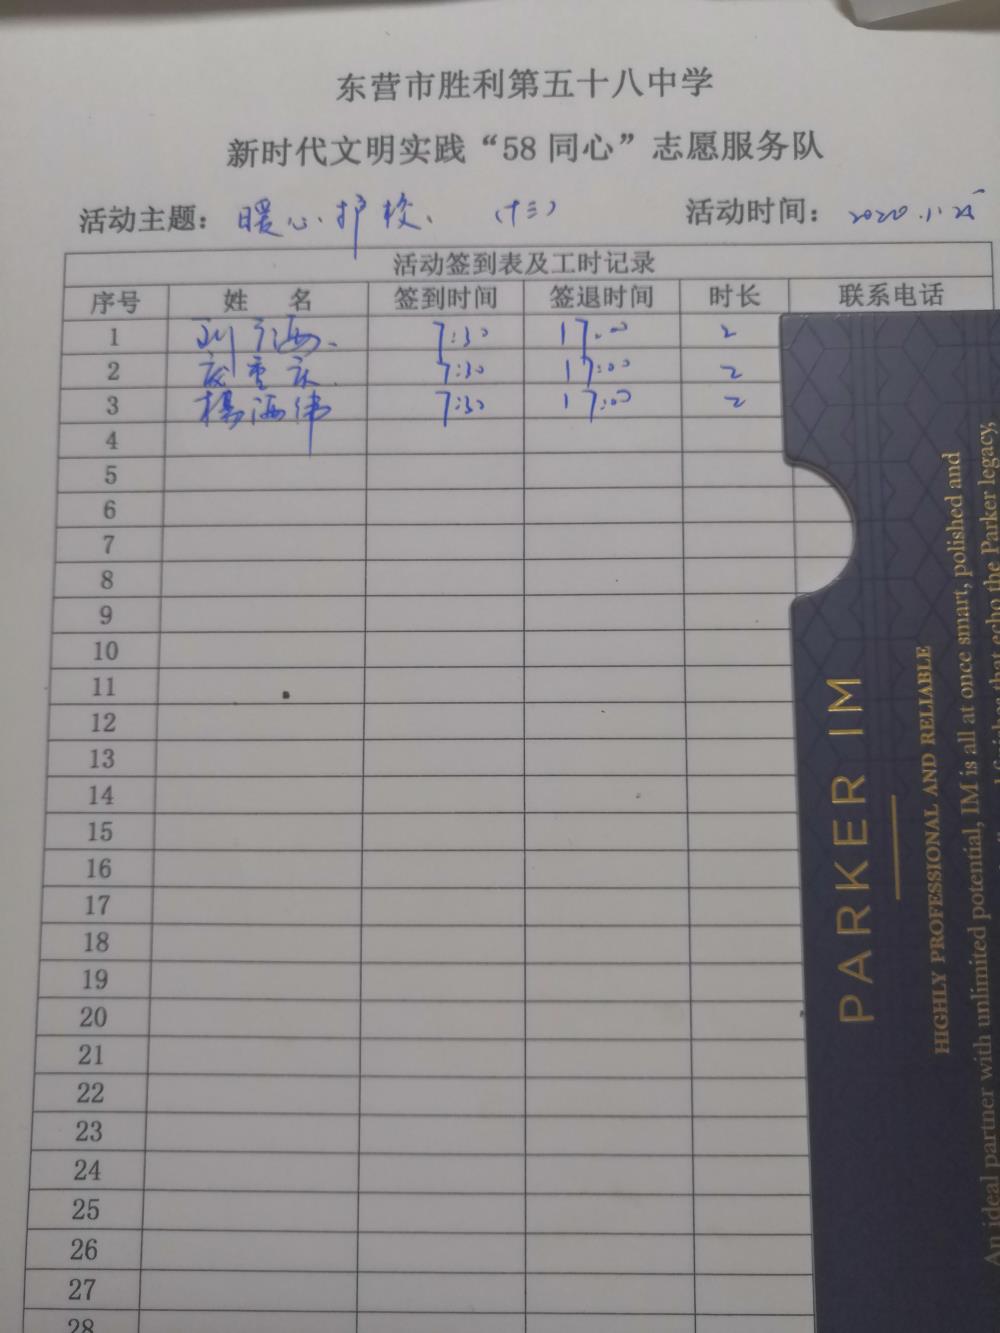 东营市胜利第五十八中学
新时代文明实践“58同心”志愿服务队
活动主题： 暖心护校、（十三） 活动时间： 2020.11.25
活动签到表及工时记录
序号 姓 名 签到时间 签退时间 时长 联系电话
1 7:30 17:00 2
2 7:30 17:00 2
3 杨海伟 7:30 17:00 2
4
5
6
7
8
9
10
11
12
13
14
15
16
17
18
19
20
21
22
23
24
25
26
27
28
PARKER IM
HIGHLY PROFESSIONAL AND RELIABLE
An ideal partner with unlimited potential, IM is all at once smart, polished and
that echo the Parker legacy,